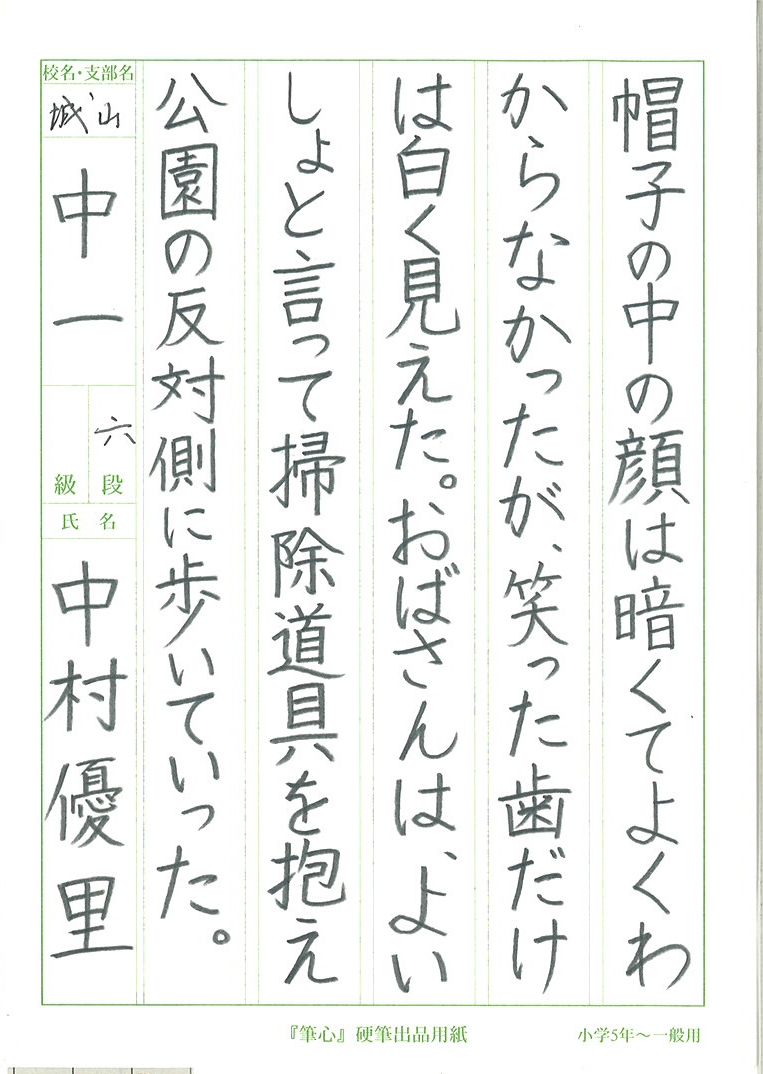 帽子の中の顔は暗くてよくわ
からなかったが、笑った歯だけ
は白く見えた。おばさんは、よい
しょと言って掃除道具を抱え
公園の反対側に歩いていった。
校名・支部名
城山
中一
六
級 段
氏名
中村優里
『筆心』硬筆出品用紙
小学5年～一般用